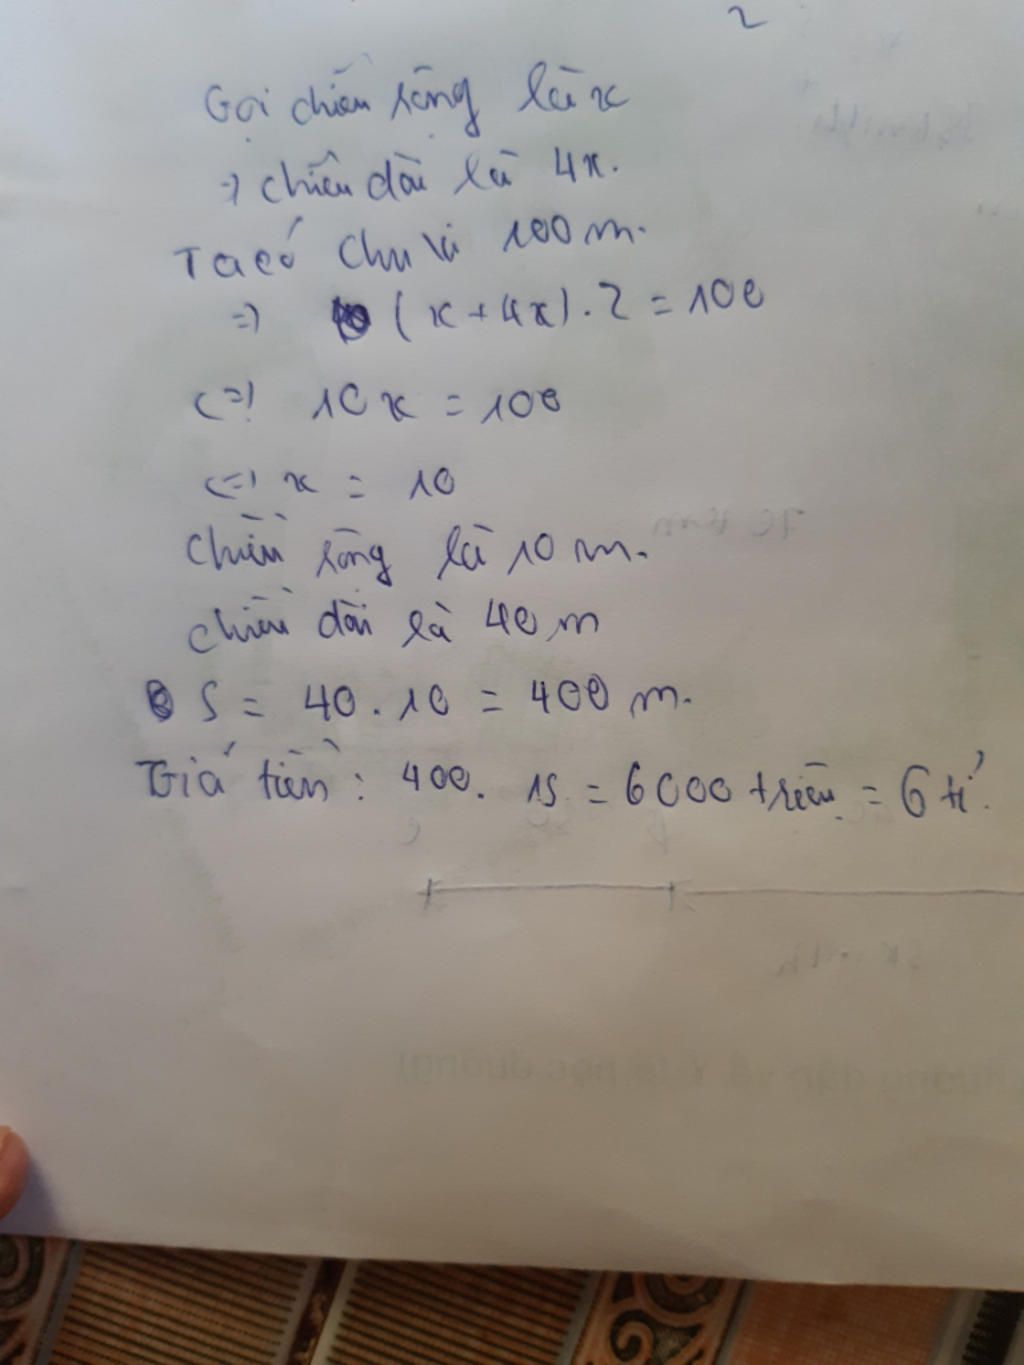 2
Gọi chiều rộng là x
=> chiều dài là 4x.
Ta có chu vi 100 m.
=> (x + 4x) . 2 = 100
<=> 10x = 100
<=> x = 10
Chiều rộng là 10 m.
chiều dài là 40 m
S = 40 . 10 = 400 m.
Giá tiền : 400 . 15 = 6000 triệu = 6 tỉ.